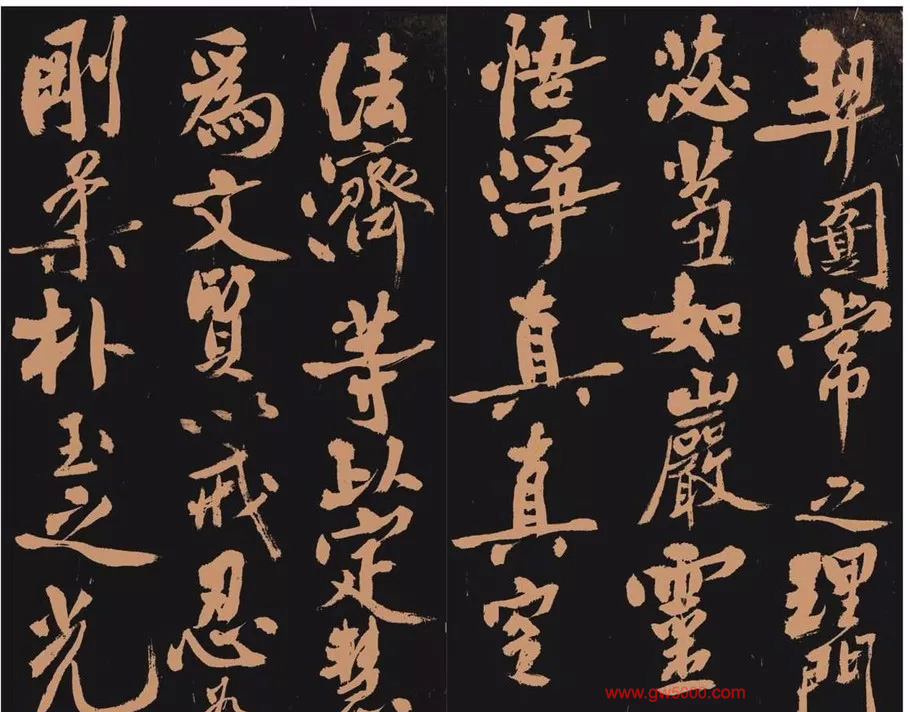 契圓常之理門
苾蒭如山嚴靈
悟淨真真空
法濟等以定慧
爲文質以戒忍爲
剛柔朴玉之光
www.gw5000.com